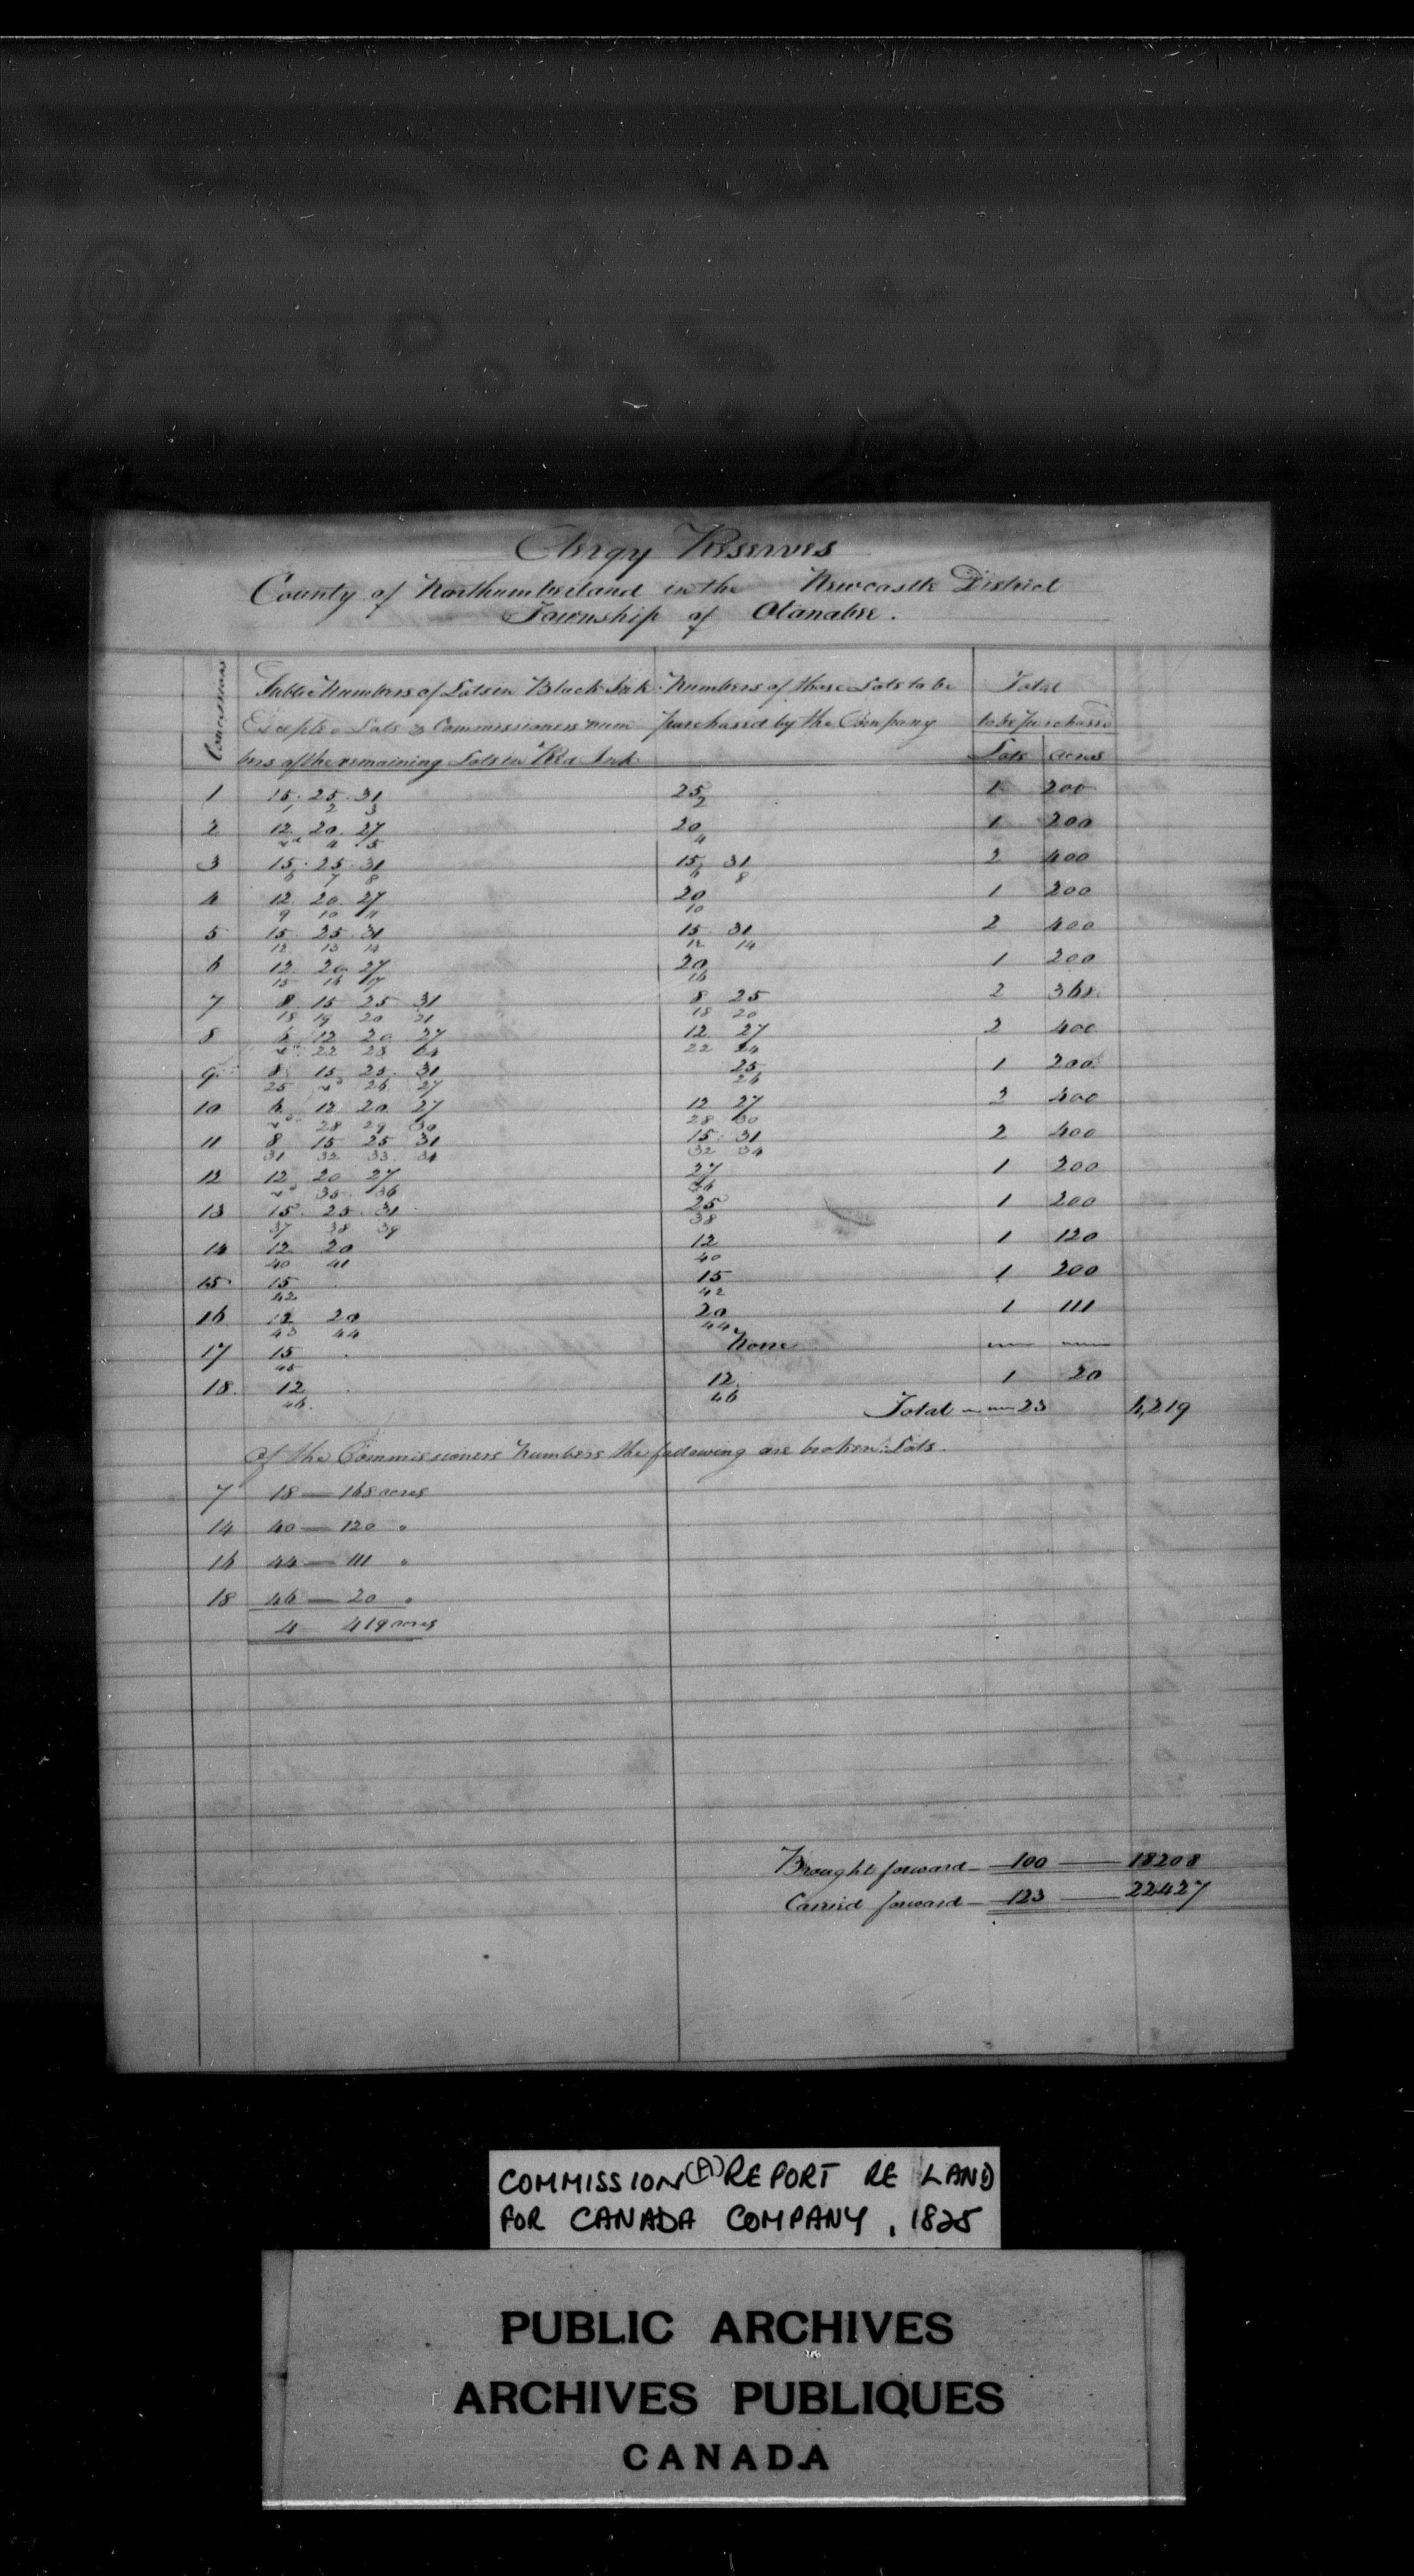 Clergy Reserves
County of Northumberland in the Newcastle District
Township of Otanabee.
Concessions
Public Numbers of Lots in Black Ink
Excepte Lots & Commissioners num
bers of the remaining Lots in Red Ink
Numbers of those Lots to be
purchased by the Company
Total
to be purchased
Lots acres
1 15. 25. 31 25 1 200
1 2 3 2
2 12. 20. 27 20 1 200
4 5 4
3 15. 25. 31 15 31 2 400
6 7 8 6 8
4 12. 20. 27 20 1 200
9 10 11 10
5 15. 25. 31 15 31 2 400
12 13 14 12 14
6 12. 20. 27 20 1 200
15 16 17 16
7 8 15 25 31 8 25 2 368
18 19 20 21 18 20
8 6 12 20 27 12 27 2 400
22 23 24 22 24
9 8 15 25. 31 25 1 200
25 26 27 26
10 6 12 20 27 12 27 2 400
28 29 30 28 30
11 8 15 25 31 15 31 2 400
31 32 33. 34 32 34
12 12 20 27 27 1 200
35 36 36
13 15. 25. 31 25 1 200
37 38 39 38
14 12 20 12 1 120
40 41 40
15 15 15 1 200
42 42
16 12 20 20 1 111
43 44 44
17 15 None
45
18. 12 12 1 20
46. 46
Total 23 4,219
Of the Commissioners Numbers the following are broken Lots.
7 18 — 168 acres
14 40 — 120 "
16 44 — 111 "
18 46 — 20 "
4 419 acres
Brought forward — 100 — 18208
Carried forward — 123 — 22427
COMMISSION (A) REPORT RE LAND
FOR CANADA COMPANY, 1825
PUBLIC ARCHIVES
ARCHIVES PUBLIQUES
CANADA